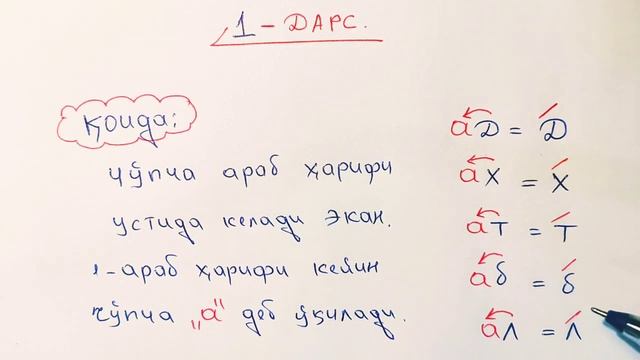 1 - ДАРС.
Қоида:
чўпча араб ҳарифи
устида келади экан.
1-араб ҳарифи кейин
чўпча „а" деб ўқилади.
аД = Д
аХ = Х
аТ = Т
аб = б
аЛ = Л